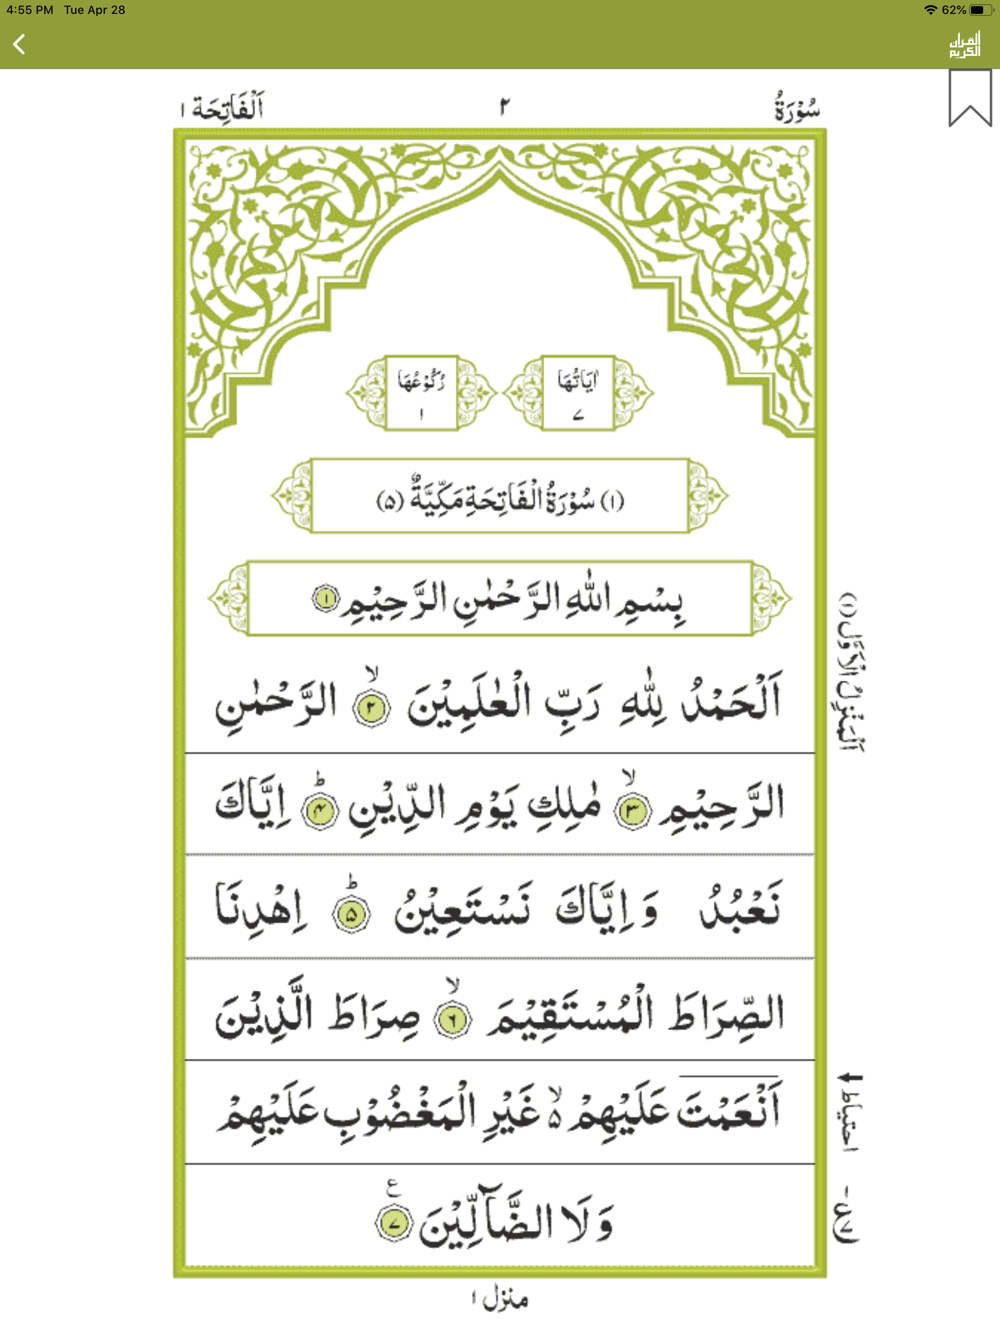 4:55 PM Tue Apr 28
62%
القرآن
الكريم
سُوْرَةُ ٢ اَلْفَاتِحَة ١
اٰيَاتُهَا
٧
رُكُوْعُهَا
١
(١) سُوْرَةُ الْفَاتِحَةِ مَكِّيَّةٌ (٥)
بِسْمِ اللّٰهِ الرَّحْمٰنِ الرَّحِيْمِ ١
اَلْحَمْدُ لِلّٰهِ رَبِّ الْعٰلَمِيْنَ ۙ ٢ الرَّحْمٰنِ
الرَّحِيْمِ ۙ ٣ مٰلِكِ يَوْمِ الدِّيْنِ ؕ ۴ اِيَّاكَ
نَعْبُدُ وَ اِيَّاكَ نَسْتَعِيْنُ ؕ ۵ اِهْدِنَا
الصِّرَاطَ الْمُسْتَقِيْمَ ۙ ٦ صِرَاطَ الَّذِيْنَ
اَنْعَمْتَ عَلَيْهِمْ ۙ۵ غَيْرِ الْمَغْضُوْبِ عَلَيْهِمْ
وَ لَا الضَّآلِّيْنَ ٧ ع
اَلْمَنْزِلُ الْاَوَّل (١)
احتیاط
ع ٧
منزل ١